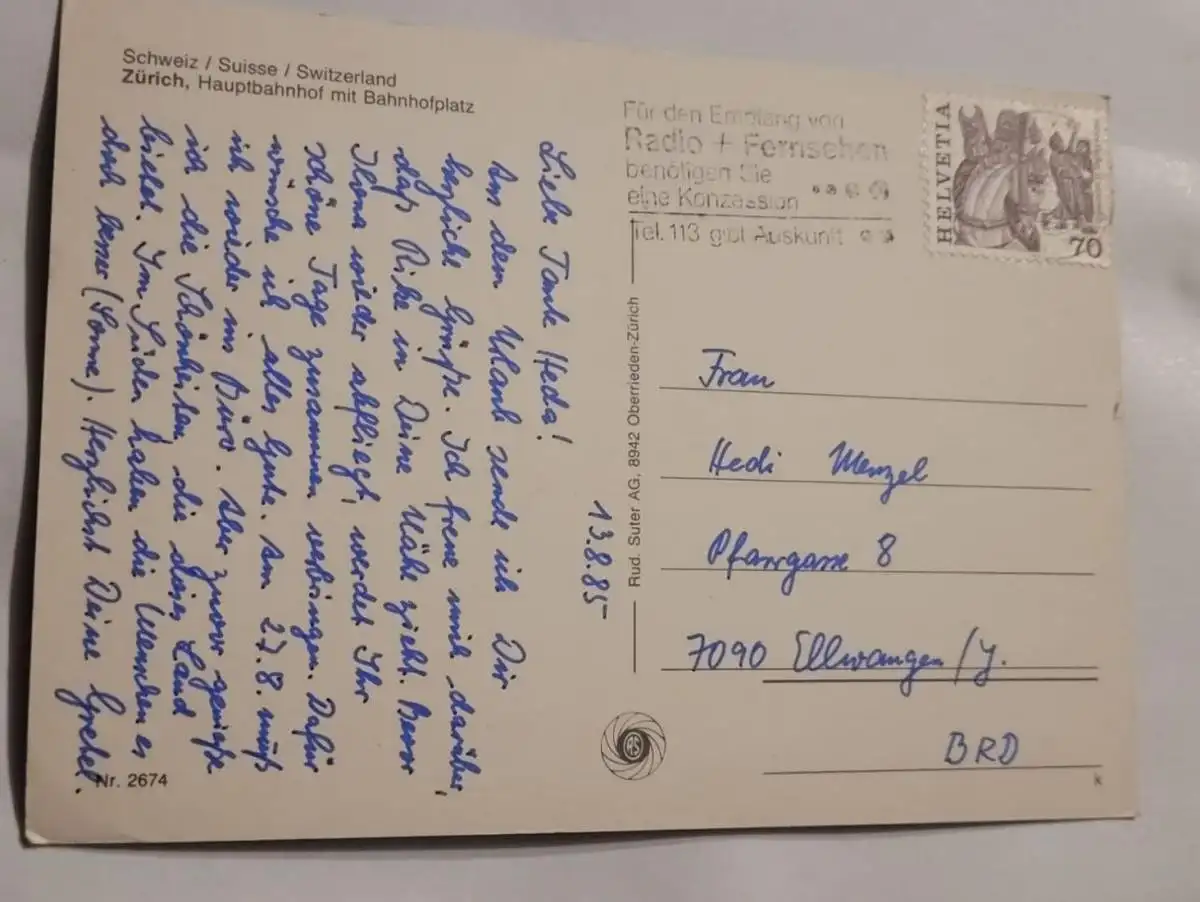 Schweiz / Suisse / Switzerland
Zürich, Hauptbahnhof mit Bahnhofplatz
13.8.85
Liebe Tante Heda!
Aus dem Urlaub sende ich Dir
herzliche Grüße. Ich freue mich darüber,
daß Rike in Deine Nähe zieht. Bevor
Ilona wieder abfliegt, werdet Ihr
schöne Tage zusammen verbringen. Dafür
wünsche ich alles Gute. Am 27.8. muß
ich wieder ins Büro. Aber zuvor genieße
ich die Schönheiten, die dieses Land
bietet. Im Süden haben die Menschen es
doch besser (Sonne). Herzlichst Deine Gretel.
Nr. 2674
Für den Empfang von
Radio + Fernsehen
benötigen Sie
eine Konzession
Tel. 113 gibt Auskunft
HELVETIA
70
Rud. Suter AG, 8942 Oberrieden-Zürich
RS
Frau
Hedi Menzel
Pfarrgasse 8
7090 Ellwangen/J.
BRD
k